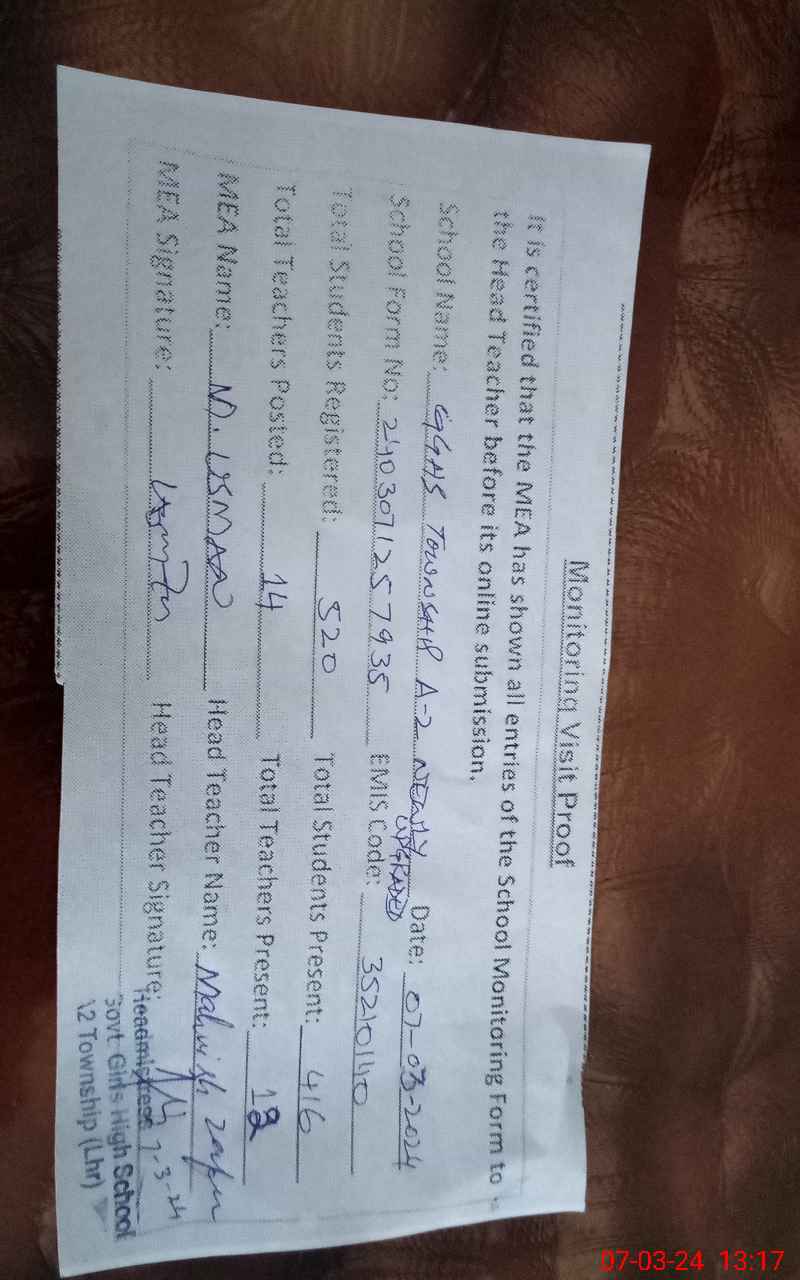 Monitoring Visit Proof
It is certified that the MEA has shown all entries of the School Monitoring Form to
the Head Teacher before its online submission.
School Name: GGHS TOWNSHIP A-2 NEWLY UPGRADED Date: 07-03-2024
School Form No: 2403071257935 EMIS Code: 35210140
Total Students Registered: 520 Total Students Present: 416
Total Teachers Posted: 14 Total Teachers Present: 12
MEA Name: M. USMAN Head Teacher Name: Mahwish Zafar
MEA Signature: Usman Head Teacher Signature:
7-3-24
Headmistress
Govt Girls High School
A2 Township (Lhr)
07-03-24 13:17